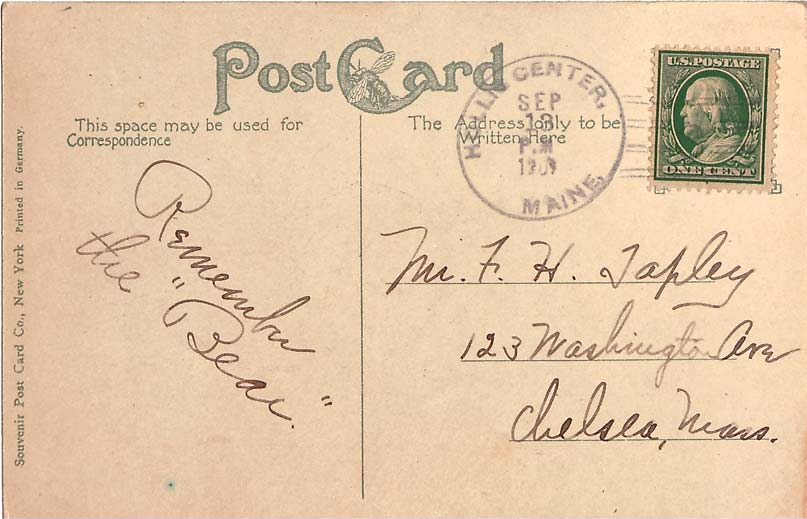 Post Card
This space may be used for
Correspondence
The Address only to be
Written Here
CENTER,
SEP
P.M
MAINE.
U.S. POSTAGE
ONE CENT
Remember
the "Bear."
Mr. F. H. Tapley
123 Washington Ave
Chelsea, Mass.
Souvenir Post Card Co., New York Printed in Germany.